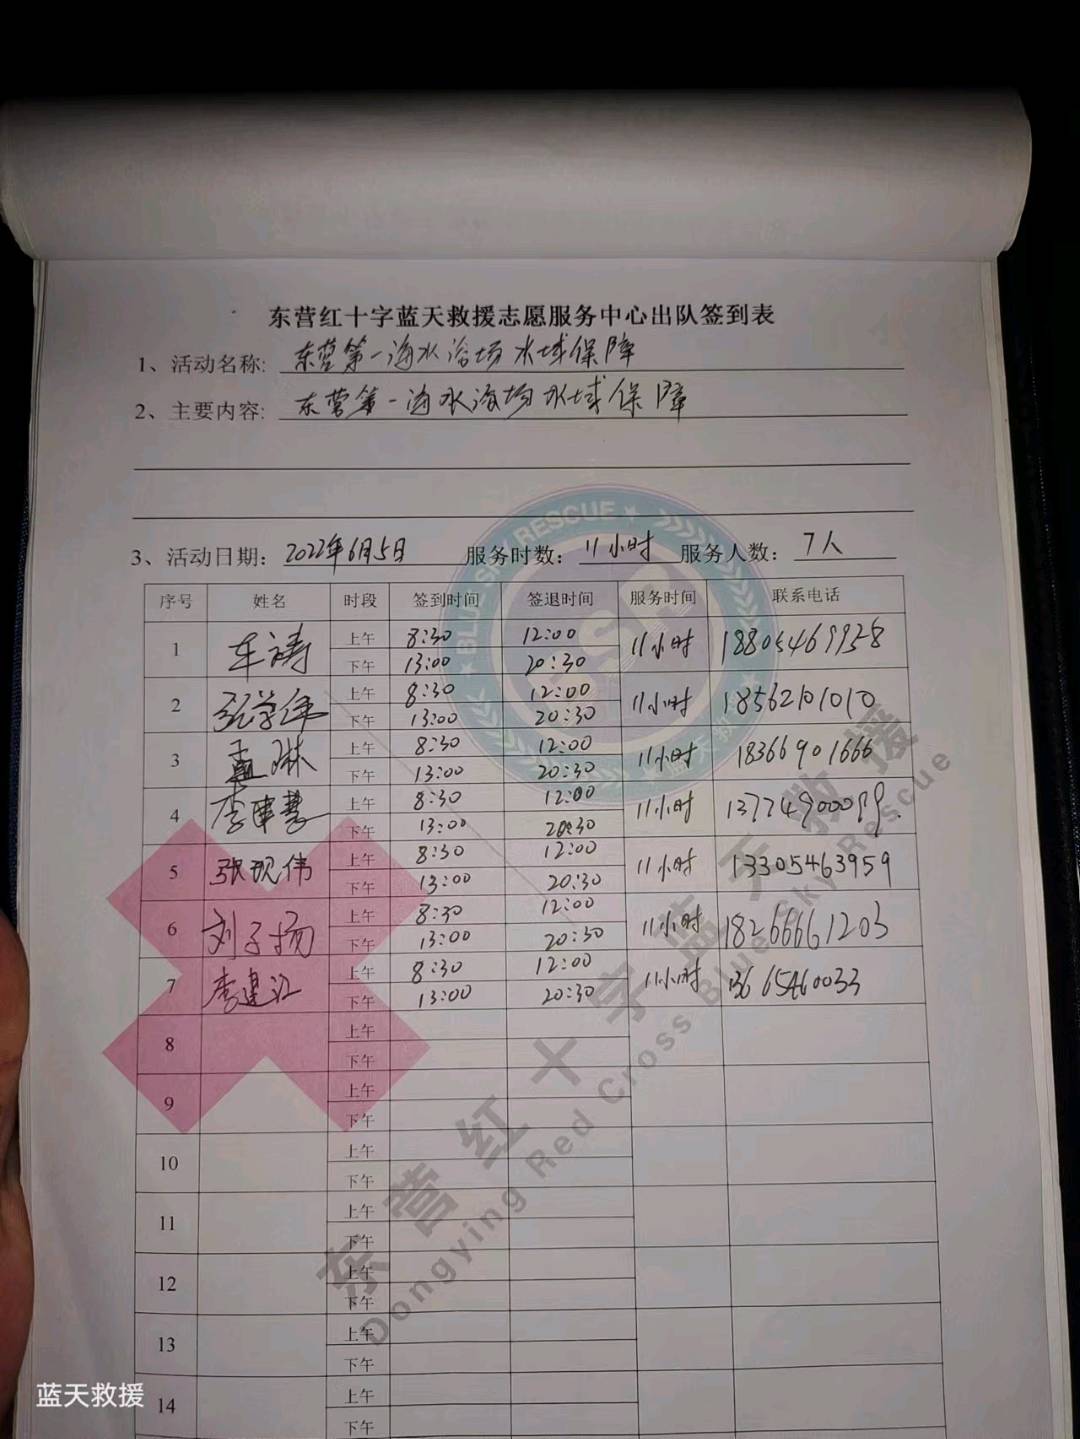 东营红十字蓝天救援志愿服务中心出队签到表
1、活动名称: 东营第一海水浴场水域保障
2、主要内容: 东营第一海水浴场水域保障
3、活动日期: 2022年6月5日 服务时数: 11小时 服务人数: 7人
序号 姓名 时段 签到时间 签退时间 服务时间 联系电话
1 车涛 上午 8:30 12:00 11小时 18805469958
下午 13:00 20:30
2 张学伟 上午 8:30 12:00 11小时 18562101010
下午 13:00 20:30
3 孟琳 上午 8:30 12:00 11小时 18366901666
下午 13:00 20:30
4 李建慧 上午 8:30 12:00 11小时 13774900099
下午 13:00 20:30
5 张现伟 上午 8:30 12:00 11小时 13305463959
下午 13:00 20:30
6 刘子扬 上午 8:30 12:00 11小时 18266661203
下午 13:00 20:30
7 李建江 上午 8:30 12:00 11小时 13665460033
下午 13:00 20:30
8 上午
下午
9 上午
下午
10 上午
下午
11 上午
下午
12 上午
下午
13 上午
下午
14 上午
下午
BLUE SKY RESCUE
BSR
蓝天救援
东营红十字蓝天救援
Dongying Red Cross Blue Sky Rescue
蓝天救援